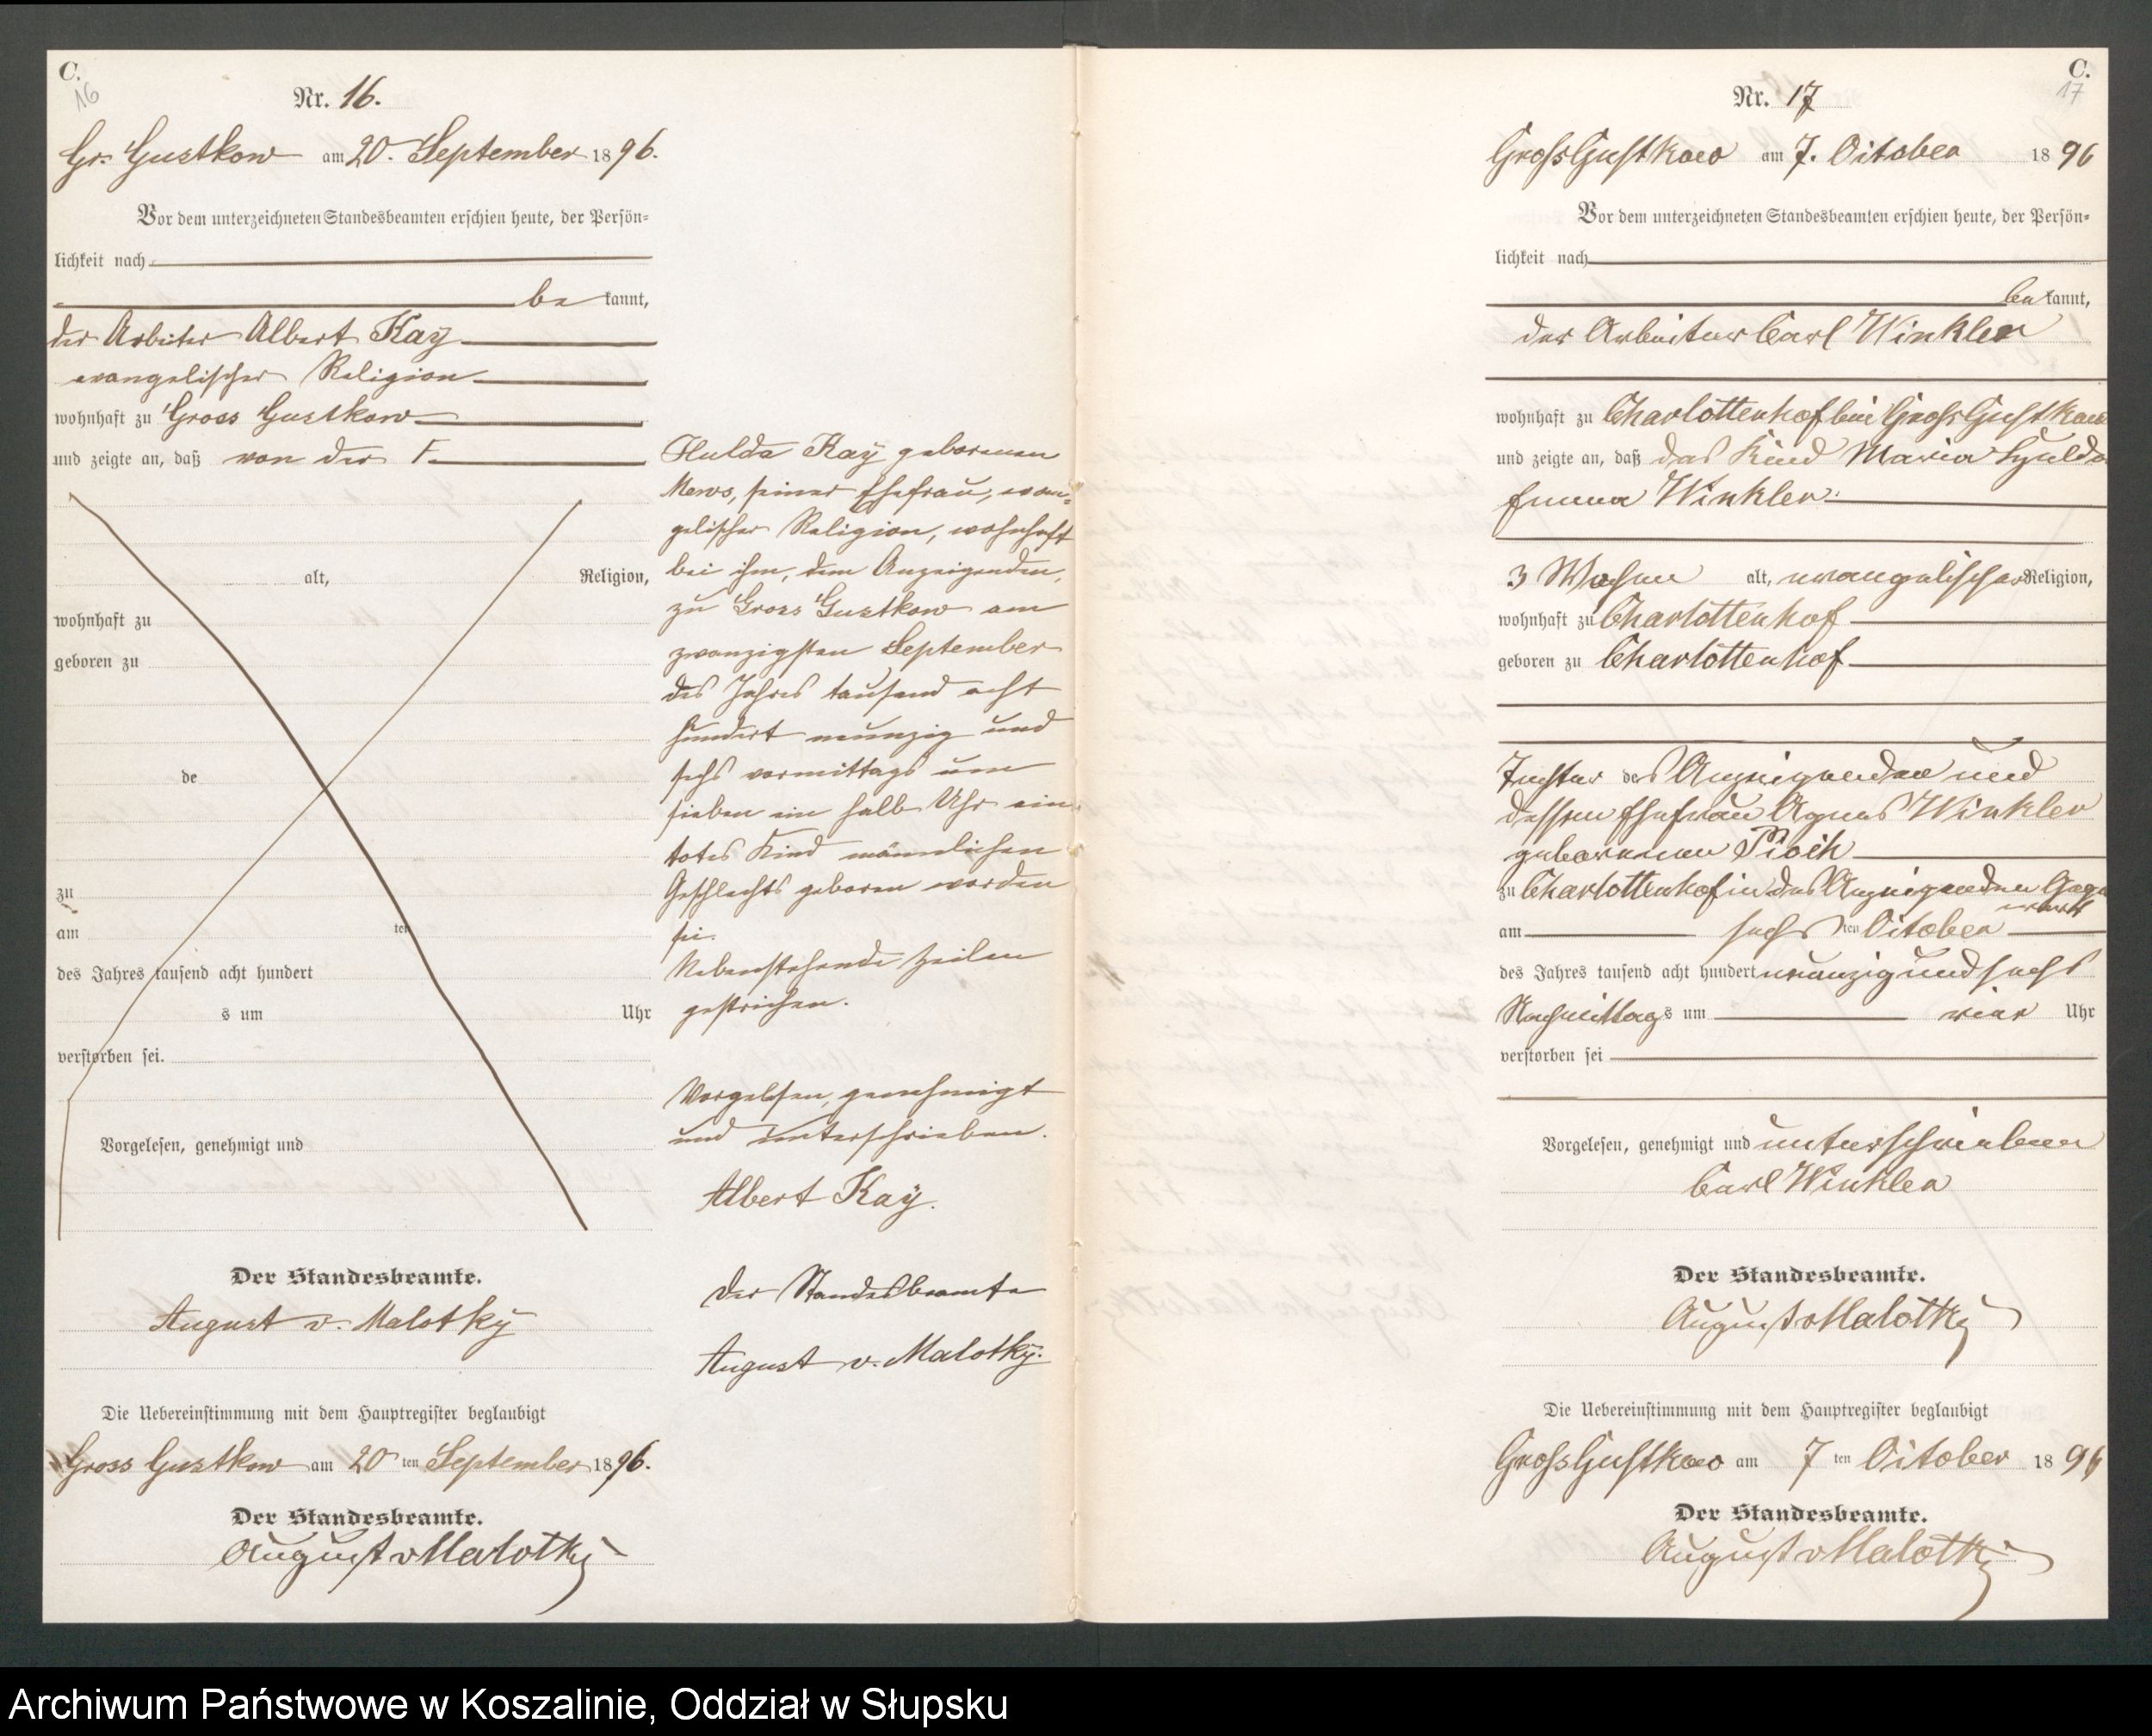 C.
16
Nr. 16.
Gr. Gustkow am 20. September 1896.
Vor dem unterzeichneten Standesbeamten erschien heute, der Persön-
lichkeit nach
be kannt,
der Arbeiter Albert Kaÿ
evangelischer Religion
wohnhaft zu Gross Gustkow
und zeigte an, daß von der F.
alt, Religion,
wohnhaft zu
geboren zu
de
zu
am ten
des Jahres tausend acht hundert
s um Uhr
verstorben sei.
Vorgelesen, genehmigt und
Der Standesbeamte.
August v. Malotkÿ
Die Uebereinstimmung mit dem Hauptregister beglaubigt
Gross Gustkow am 20 ten September 1896.
Der Standesbeamte.
August v Malotky
Hulda Kaÿ geborenen
Mews, seiner Ehefrau, evan-
gelischer Religion, wohnhaft
bei ihm, dem Anzeigenden,
zu Gross Gustkow am
zwanzigsten September
des Jahres tausend acht
hundert neunzig und
sechs vormittags um
sieben ein halb Uhr ein
totes Kind männlichen
Geschlechts geboren worden
sei.
Nebenstehende Zeilen
gestrichen.
Vorgelesen, genehmigt
und unterschrieben.
Albert Kaÿ.
Der Standesbeamte
August v. Malotkÿ.
C.
17
Nr. 17
Groß Gustkow am 7. October 1896
Vor dem unterzeichneten Standesbeamten erschien heute, der Persön-
lichkeit nach
be kannt,
der Arbeiter Carl Winkler
wohnhaft zu Charlottenhof bei Groß Gustkow
und zeigte an, daß das Kind Maria Hulda
Emma Winkler
3 Wochen alt, evangelischer Religion,
wohnhaft zu Charlottenhof
geboren zu Charlottenhof
Tochter des Anzeigenden und
dessen Ehefrau Agnes Winkler
geborenen Pioch
zu Charlottenhof in des Anzeigenden Gegen
wart
am sechs ten October
des Jahres tausend acht hundert neunzig und sechs
Nachmittags um vier Uhr
verstorben sei
Vorgelesen, genehmigt und unterschrieben
Carl Winkler
Der Standesbeamte.
August v Malotky
Die Uebereinstimmung mit dem Hauptregister beglaubigt
Groß Gustkow am 7 ten October 1896
Der Standesbeamte.
August v Malotky
Archiwum Państwowe w Koszalinie, Oddział w Słupsku